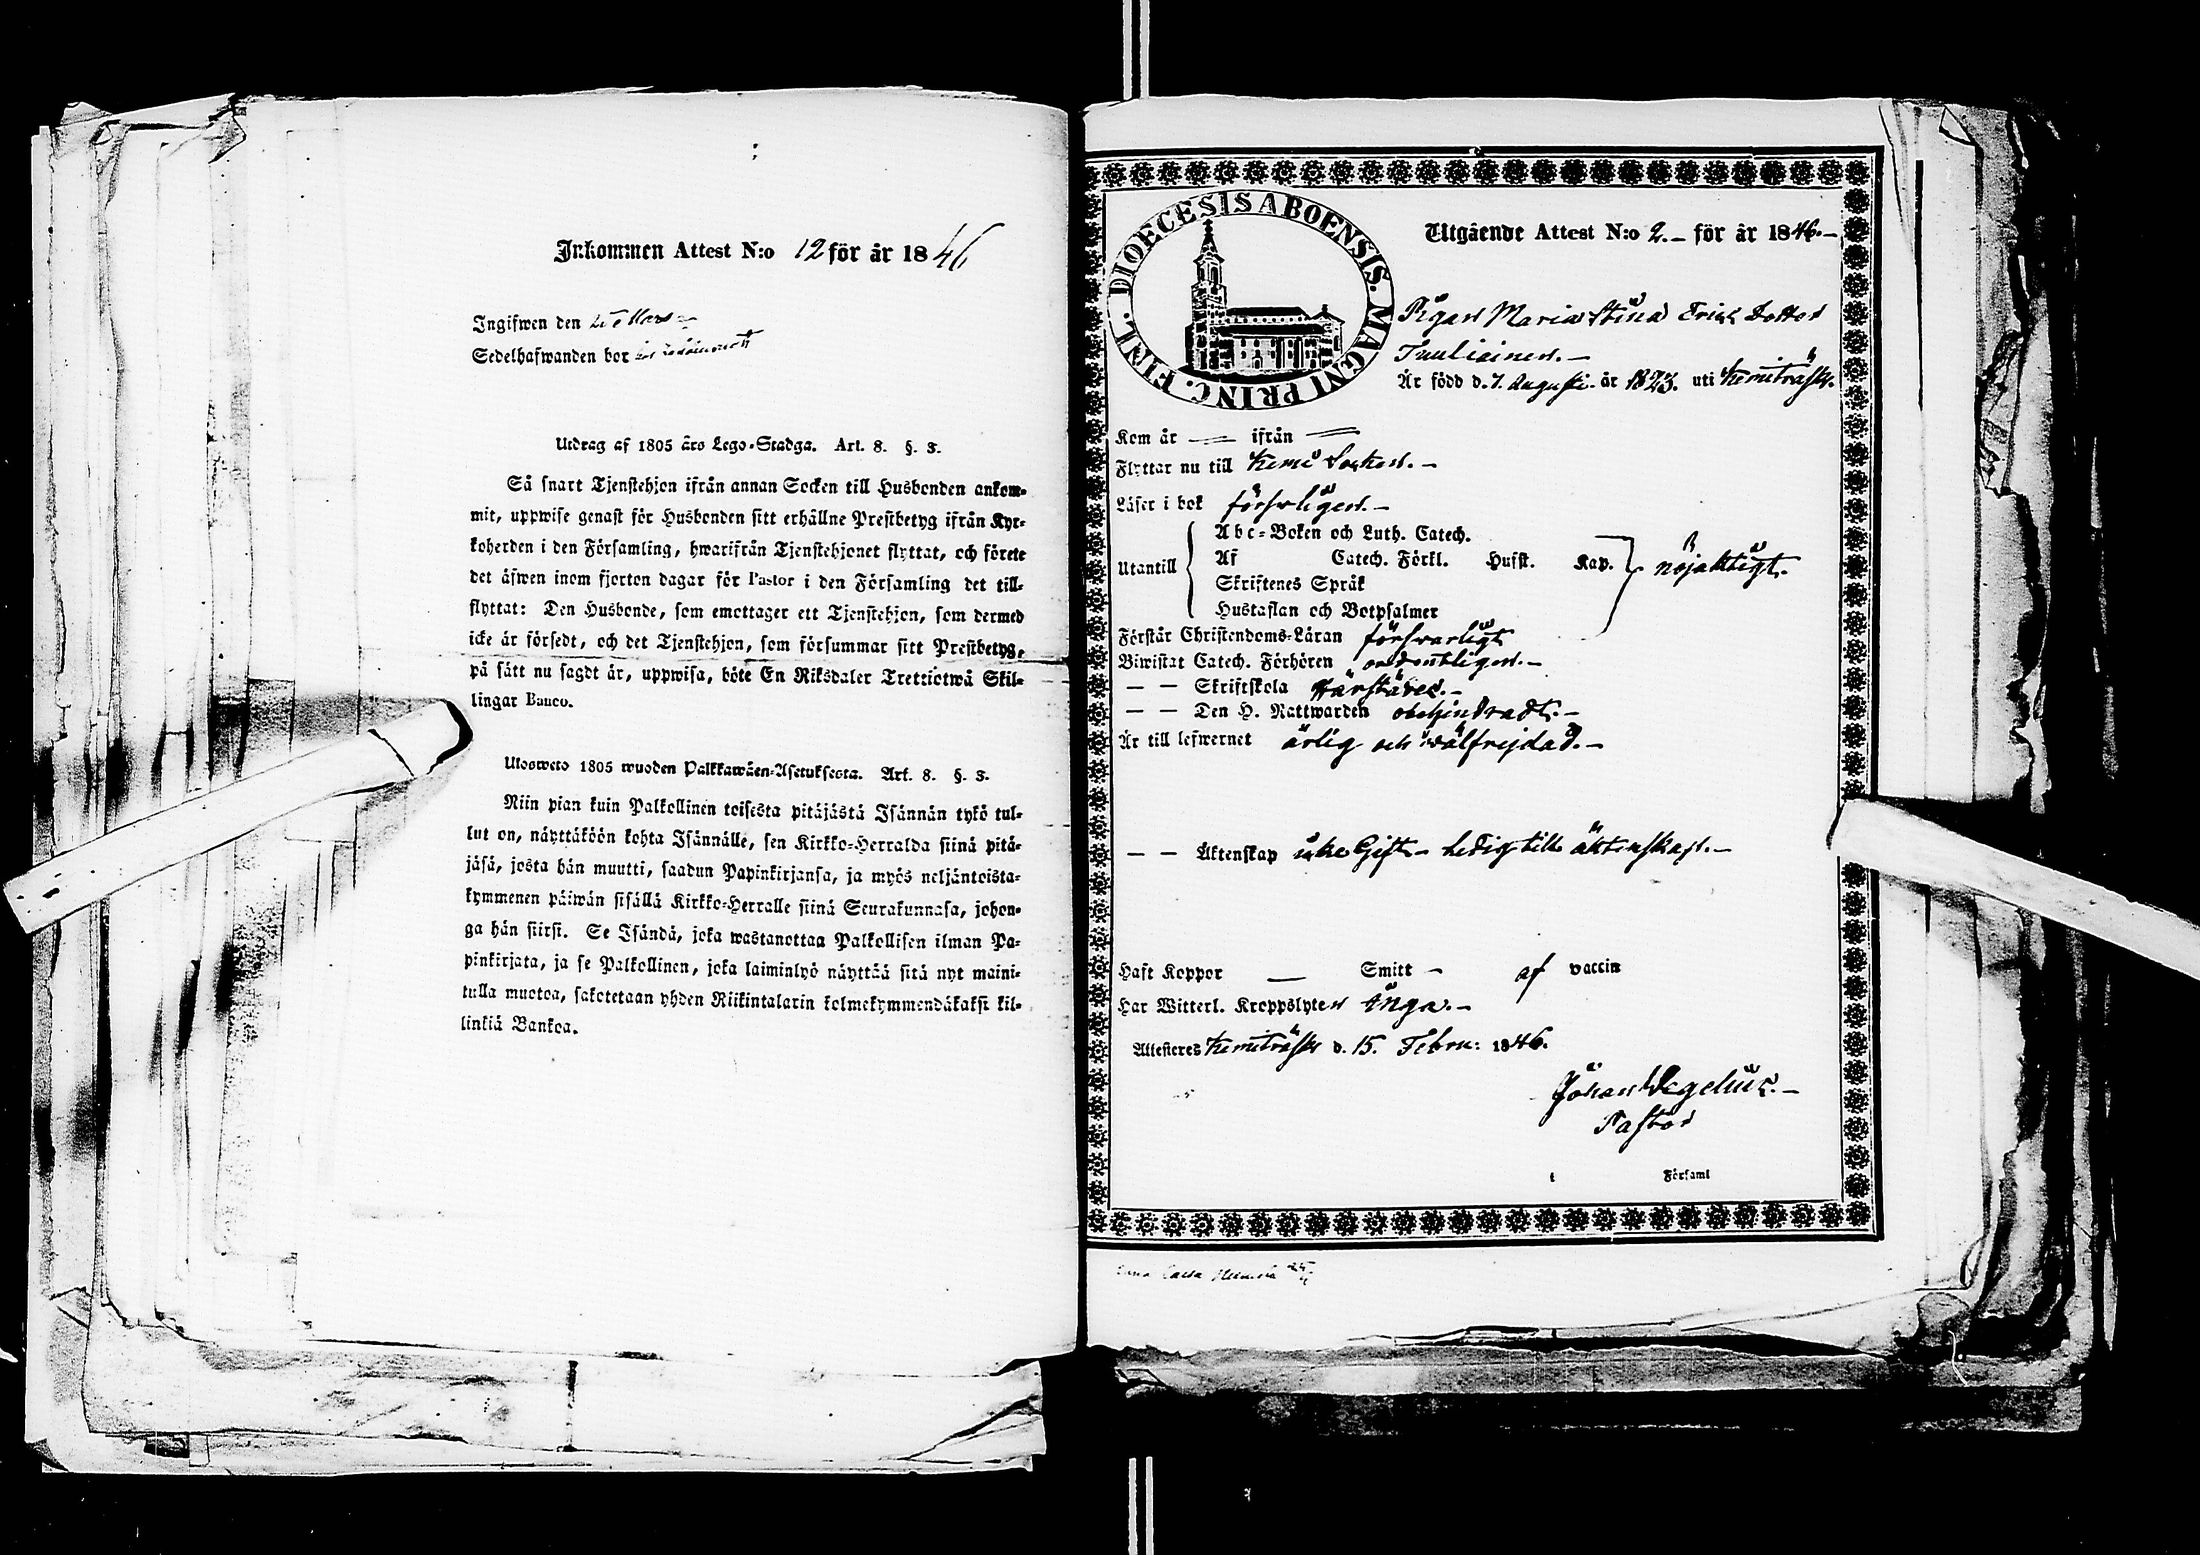 Inkommen Attest N:o 12 för år 1846
Ingifwen den Mars
Sedelhafwanden bor
Utdrag af 1805 års Lego-Stadga. Art. 8. §. 3.
Så snart Tjenstehjon ifrån annan Socken till Husbonden ankom-
mit, uppwise genast för Husbonden sitt erhållne Prestbetyg ifrån Kyr-
koherden i den Församling, hwarifrån Tjenstehjonet flyttat, och förete
det äfwen inom fjorton dagar för Pastor i den Församling det till-
flyttat: Den Husbonde, som emottager ett Tjenstehjon, som dermed
icke är försedt, och det Tjenstehjon, som försummar sitt Prestbetyg,
på sätt nu sagdt är, uppwisa, böte En Riksdaler Trettiotwå Skil-
lingar Banco.
Ulosweto 1805 wuoden Palkkawäen-Asetuksesta. Art. 8. §. 3.
Niin pian kuin Palkollinen toisesta pitäjästä Isännän tykö tul-
lut on, näyttäköön kohta Isännälle, sen Kirkko-Herralda siinä pitä-
jäsä, josta hän muutti, saadun Papinkirjansa, ja myös neljäntoista-
kymmenen päiwän sisällä Kirkko-Herralle siinä Seurakunnasa, johon-
ga hän siirsi. Se Isändä, joka wastanottaa Palkollisen ilman Pa-
pinkirjata, ja se Palkollinen, joka laiminlyö näyttää sitä nyt maini-
tulla muotoa, sakotetaan yhden Riikintalarin kolmekymmendäkaksi kil-
linkiä Bankoa.
DIOECESIS ABOENSIS. MAGNI PRINC. FINL.
Utgående Attest N:o 2.- för år 1846.-
Pigan Maria Stina Erics Dotter
Tuuliainen.-
Är född d. 7. Augusti. år 1823. uti Kemiträsk.
Kom år — ifrån —
Flyttar nu till Kemi Socken.-
Läser i bok försvarligen.-
Utantill
Abc-Boken och Luth. Catech.
Af Catech. Förkl. Husst. Kap. nöjaktigt.
Skriftenes Språk
Hustaflan och Botpsalmer
Förstår Christendoms-Läran försvarligt
Biwistat Catech. Förhören ordentligen.-
— — Skriftskola
— — Den H. Nattwarden obehindradt.-
Är till lefwernet ärlig och wälfrejdad.-
— — Äktenskap icke Gift - ledig till äktenskap.-
Haft Koppor — Smitt - af vaccin
Har Witterl. Kroppslyten inga.-
Attesteres Kemiträsk d. 15. Febru: 1846.
Johan Wegelius.-
Pastor
i Församl